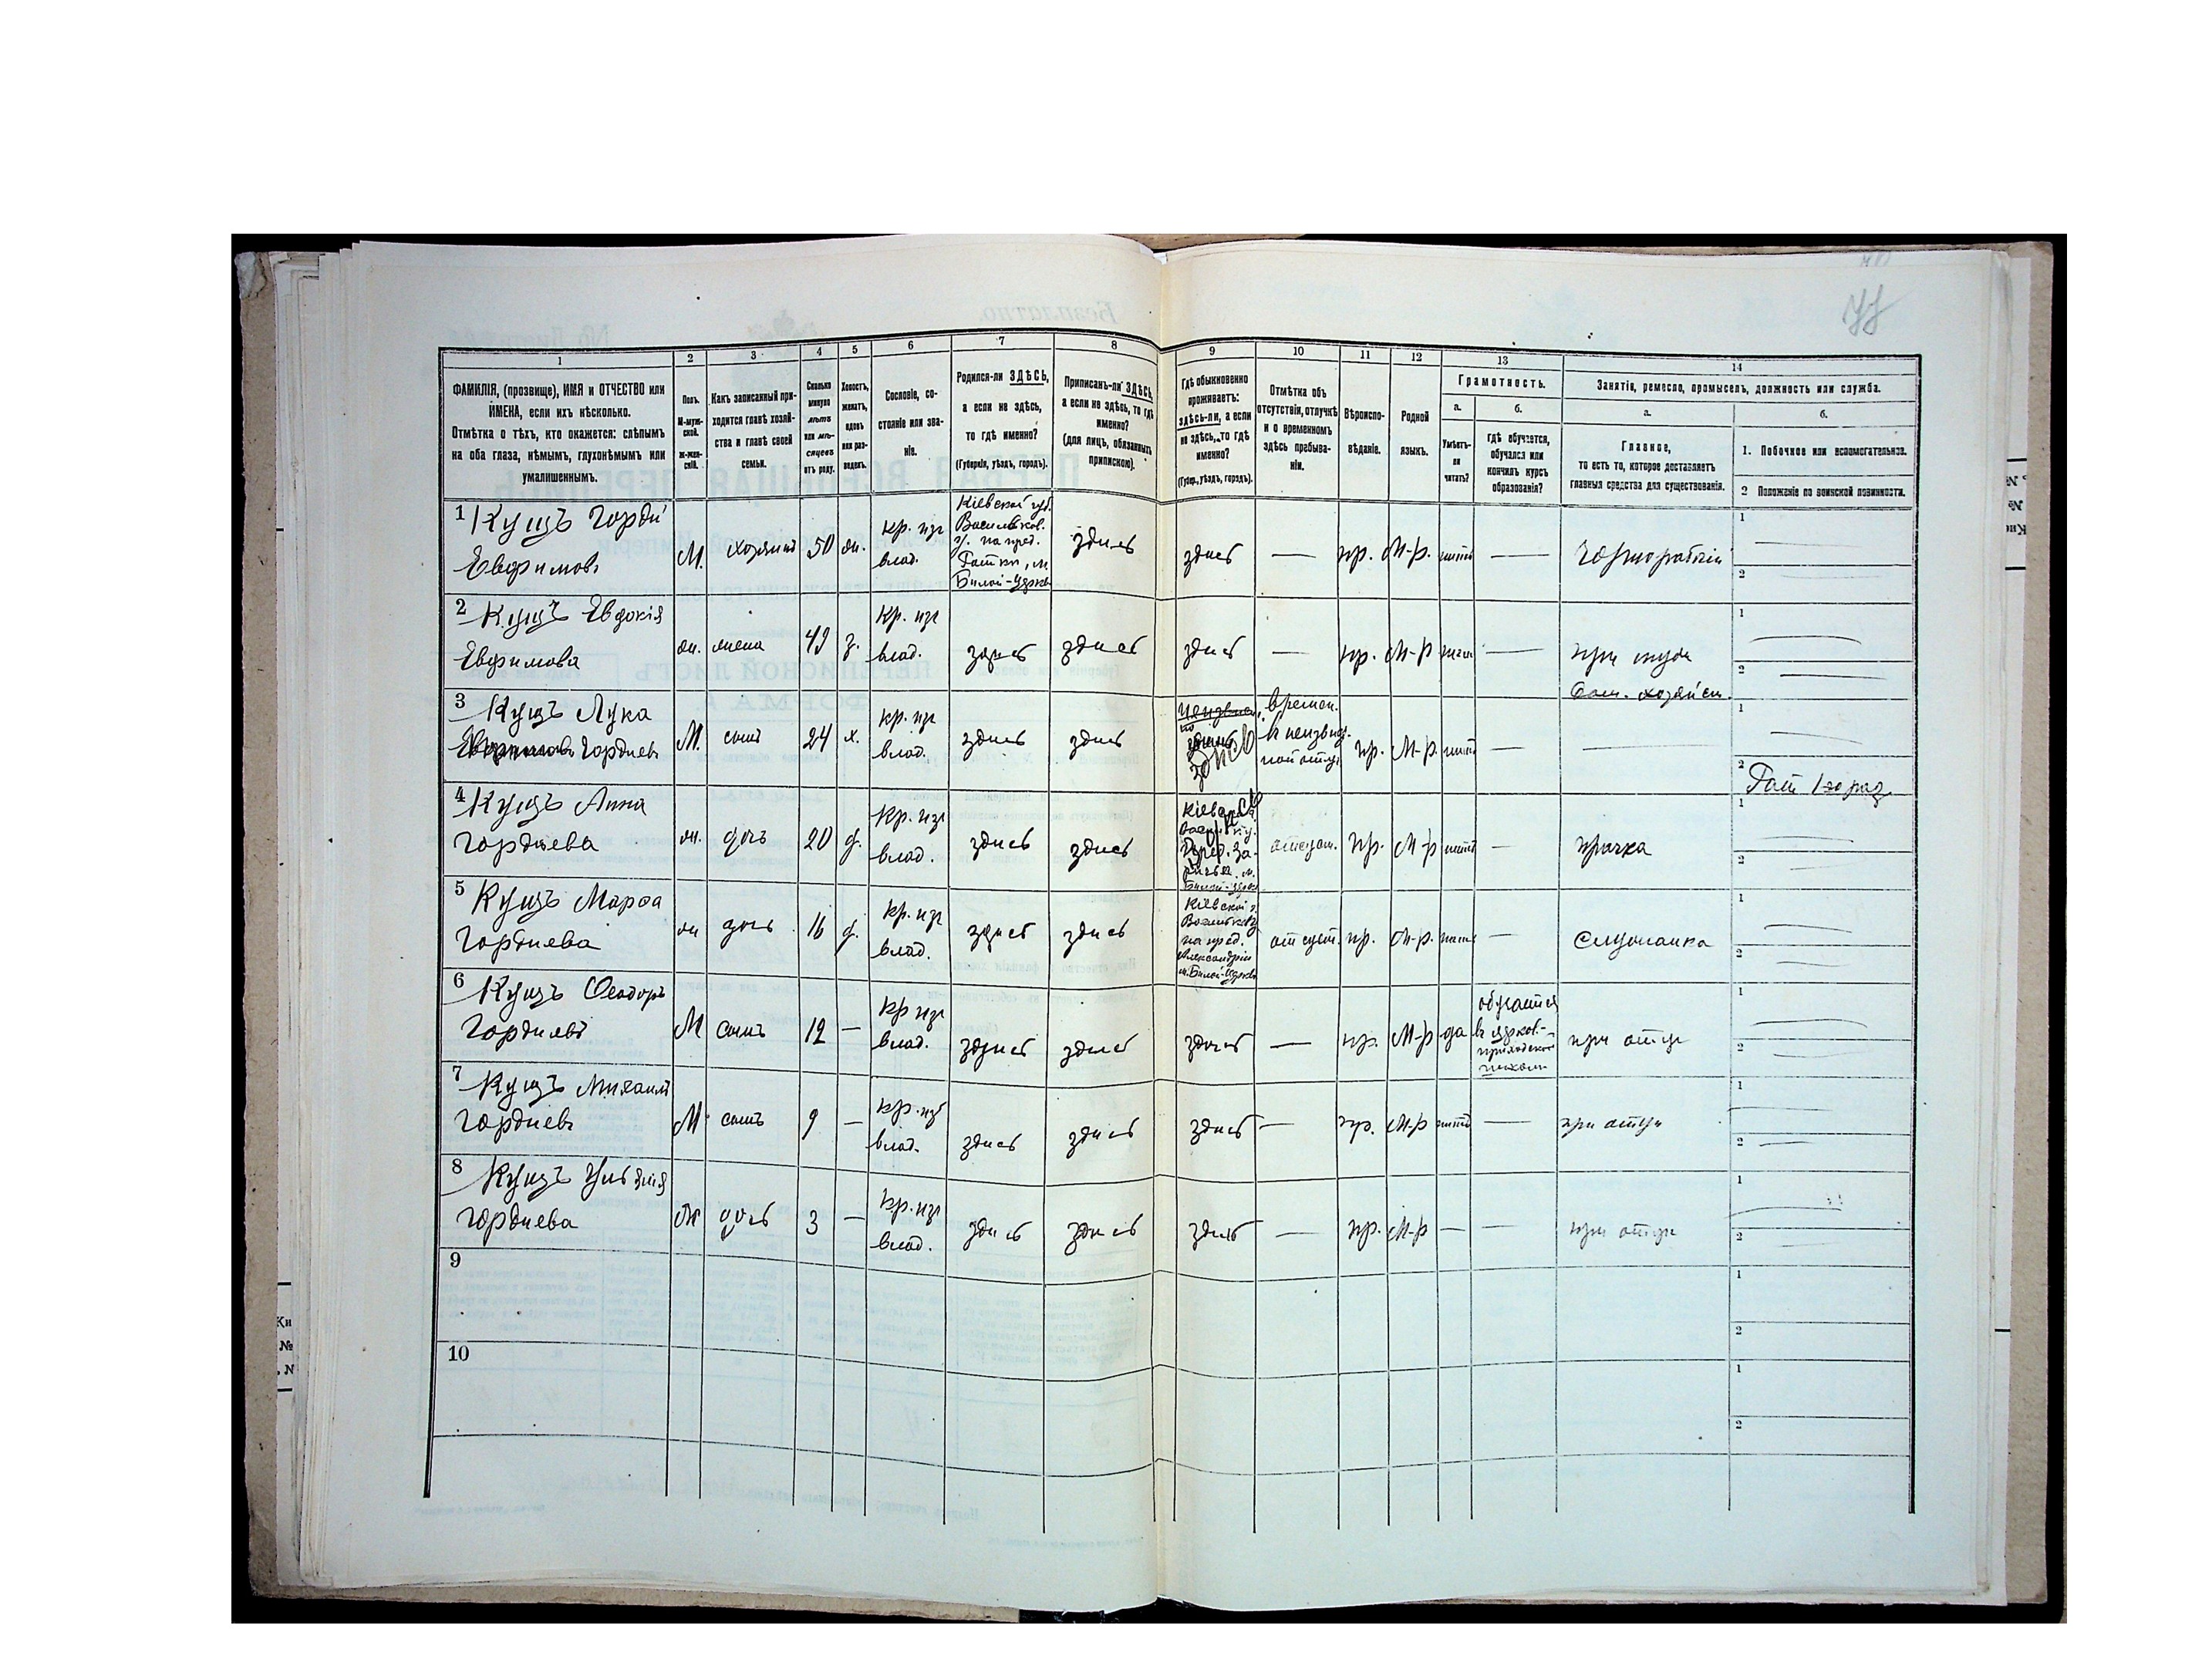 Безплатно.
1 2 3 4 5 6 7 8 9 10 11 12 13 14
ФАМИЛІЯ, (прозвище), ИМЯ и ОТЧЕСТВО или
ИМЕНА, если ихъ нѣсколько.
Отмѣтка о тѣхъ, кто окажется: слѣпымъ
на оба глаза, нѣмымъ, глухонѣмымъ или
умалишеннымъ.
Полъ.
М-муж-
ской.
ж-жен-
скій.
Какъ записанный при-
ходится главѣ хозяй-
ства и главѣ своей
семьи.
Сколько
минуло
лѣтъ
или мѣ-
сяцевъ
отъ роду.
Холостъ,
женатъ,
вдовъ
или раз-
веденъ.
Сословіе, со-
стояніе или зва-
ніе.
Родился-ли ЗДѢСЬ,
а если не здѣсь,
то гдѣ именно?
(Губернія, уѣздъ, городъ).
Приписанъ-ли ЗДѢСЬ,
а если не здѣсь, то гдѣ
именно?
(для лицъ, обязанныхъ
припискою).
Гдѣ обыкновенно
проживаетъ:
здѣсь-ли, а если
не здѣсь, то гдѣ
именно?
(Губер., уѣздъ, городъ).
Отмѣтка объ
отсутствіи, отлучкѣ
и о временномъ
здѣсь пребыва-
ніи.
Вѣроиспо-
вѣданіе.
Родной
языкъ.
Грамотность.
а. б.
Умѣетъ-
ли
читать?
гдѣ обучается,
обучался или
кончилъ курсъ
образованія?
Занятія, ремесло, промыселъ, должность или служба.
а. б.
Главное,
то есть то, которое доставляетъ
главныя средства для существованія.
1. Побочное или вспомогательное.
2 Положеніе по воинской повинности.
1 Кущъ Гордій
Евфимовъ
М. хозяинъ 50 ж. кр. изъ
влад.
Кіевской губ.
Васильков.
у. на пред.
м.
Билой-Церкв
здись здись — пр. М-р. нитъ — Чорнорабочій
1
2
2 Кущъ Евдокія
Евфимова
ж. жена 49 з. Кр. изъ
влад. здись здись здись — пр. М-р —
при мужи
дом. хозяйст.
1
2
3 Кущъ Лука
Гордиевъ
М. сынъ 24 х. кр. изъ
влад. здись здись здись
времен.
в неизвист-
ной отлуч.
пр. М-р нитъ — —
1
2
4 Кущъ Анна
Гордиева
ж. дочь 20 д. Кр. изъ
влад. здись здись
отсут. пр. М-р нитъ — прачка
1
2
5 Кущъ Марфа
Гордиева
ж дочь 16 д. Кр. изъ
влад. здись здись
Кіевской г.
Васильков у
на пред.
Александрія
м. Билой-Церкв
отсут. пр. М-р. нитъ — служанка
1
2
6 Кущъ Феодоръ
Гордиевъ
М сынъ 12 — Кр изъ
влад. здись здись здись — пр. М-р да
обучается
в церков.-
приходской
школи
при отци
1
2
7 Кущъ Михаилъ
Гордиевъ
М сынъ 9 — Кр. изъ
влад. здись здись здись — пр. М-р нитъ — при отци
1
2
8 Кущъ Ульянія
Гордиева
Ж дочь 3 — Кр. изъ
влад. здись здись здись — пр. М-р — — при отци
1
2
9
1
2
10
1
2